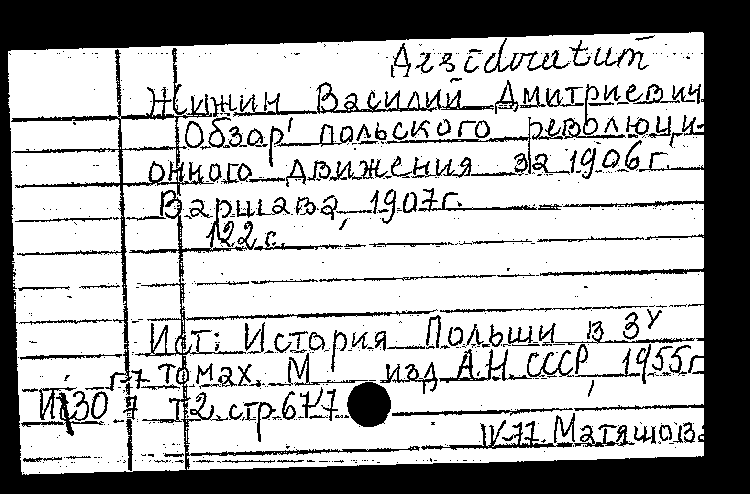 Desidoratum
Жижин Василий Дмитриевич
Обзор польского революци-
онного движения за 1906 г.
Варшава, 1907 г.
122 с.
Ист: История Польши в 3х
г-7 томах. М изд А.Н. СССР, 1955 г
И 30 7 т 2. стр 677
IV-77 Матяшова